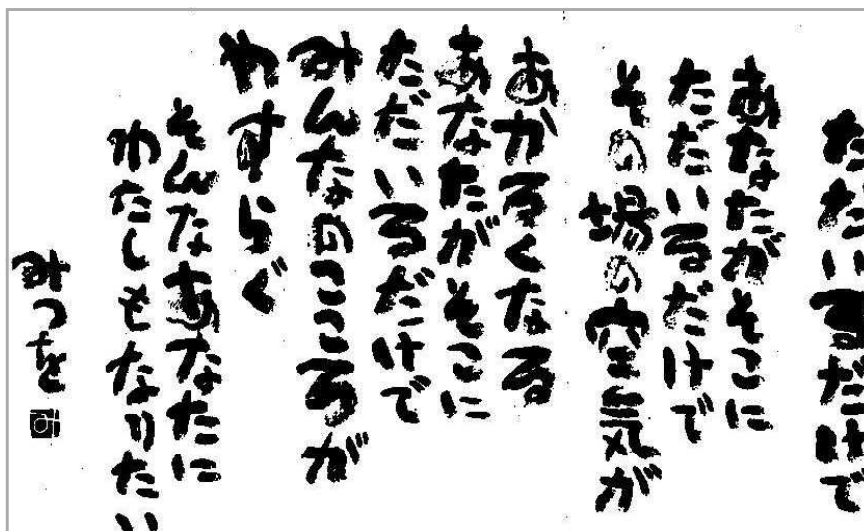 ただいるだけで
あなたがそこに
ただいるだけで
その場の空気が
あかるくなる
あなたがそこに
ただいるだけで
みんなのこころが
やすらぐ
そんなあなたに
わたしもなりたい
みつを